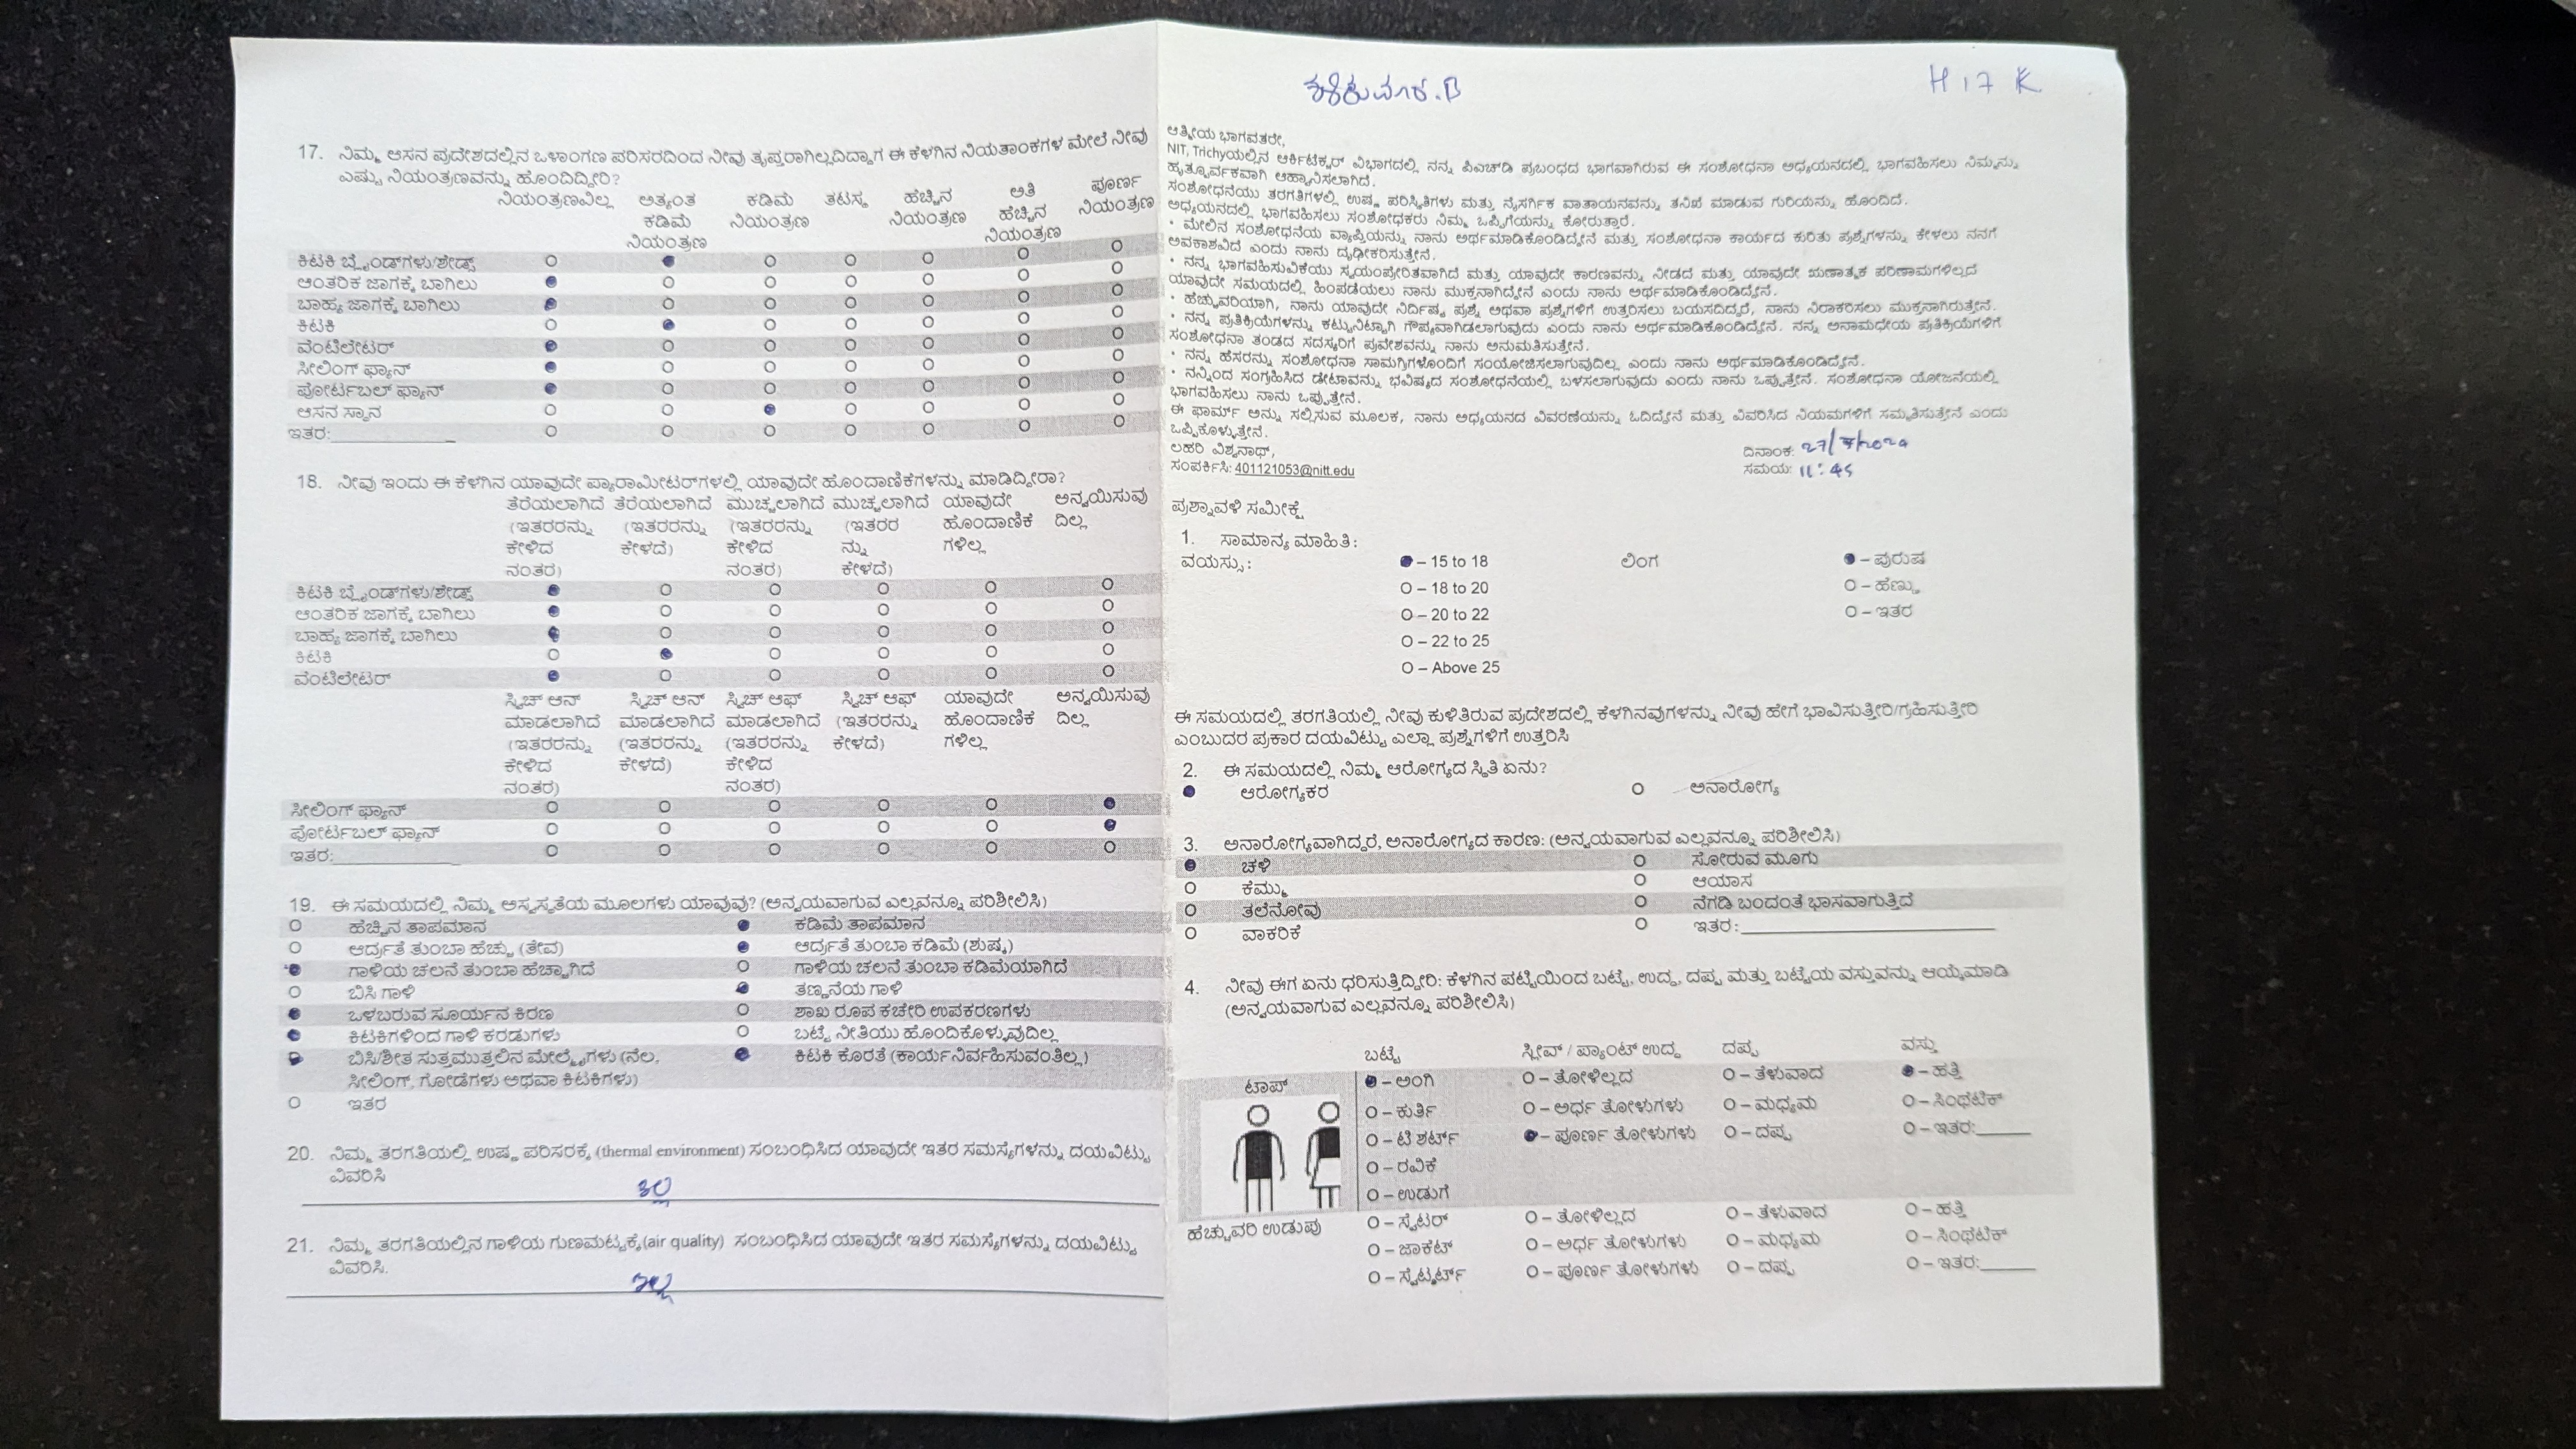 17. ನಿಮ್ಮ ಆಸನ ಪ್ರದೇಶದಲ್ಲಿನ ಒಳಾಂಗಣ ಪರಿಸರದಿಂದ ನೀವು ತೃಪ್ತರಾಗಿಲ್ಲದಿದ್ದಾಗ ಈ ಕೆಳಗಿನ ನಿಯತಾಂಕಗಳ ಮೇಲೆ ನೀವು
ಎಷ್ಟು ನಿಯಂತ್ರಣವನ್ನು ಹೊಂದಿದ್ದೀರಿ?
ನಿಯಂತ್ರಣವಿಲ್ಲ ಅತ್ಯಂತ ಕಡಿಮೆ ನಿಯಂತ್ರಣ ಕಡಿಮೆ ನಿಯಂತ್ರಣ ತಟಸ್ಥ ಹೆಚ್ಚಿನ ನಿಯಂತ್ರಣ ಅತಿ ಹೆಚ್ಚಿನ ನಿಯಂತ್ರಣ ಪೂರ್ಣ ನಿಯಂತ್ರಣ
ಕಿಟಕಿ ಬ್ಲೈಂಡ್‌ಗಳು/ಶೇಡ್ಸ್
ಆಂತರಿಕ ಜಾಗಕ್ಕೆ ಬಾಗಿಲು
ಬಾಹ್ಯ ಜಾಗಕ್ಕೆ ಬಾಗಿಲು
ಕಿಟಕಿ
ವೆಂಟಿಲೇಟರ್
ಸೀಲಿಂಗ್ ಫ್ಯಾನ್
ಪೋರ್ಟಬಲ್ ಫ್ಯಾನ್
ಆಸನ ಸ್ಥಾನ
ಇತರ:
18. ನೀವು ಇಂದು ಈ ಕೆಳಗಿನ ಯಾವುದೇ ಪ್ಯಾರಾಮೀಟರ್‌ಗಳಲ್ಲಿ ಯಾವುದೇ ಹೊಂದಾಣಿಕೆಗಳನ್ನು ಮಾಡಿದ್ದೀರಾ?
ತೆರೆಯಲಾಗಿದೆ ತೆರೆಯಲಾಗಿದೆ ಮುಚ್ಚಲಾಗಿದೆ ಮುಚ್ಚಲಾಗಿದೆ ಯಾವುದೇ ಅನ್ವಯಿಸುವು
(ಇತರರನ್ನು (ಇತರರನ್ನು (ಇತರರನ್ನು (ಇತರರ ಹೊಂದಾಣಿಕೆ ದಿಲ್ಲ
ಕೇಳಿದ ಕೇಳದೆ) ಕೇಳಿದ ನ್ನು ಗಳಿಲ್ಲ
ನಂತರ) ನಂತರ) ಕೇಳದೆ)
ಕಿಟಕಿ ಬ್ಲೈಂಡ್‌ಗಳು/ಶೇಡ್ಸ್
ಆಂತರಿಕ ಜಾಗಕ್ಕೆ ಬಾಗಿಲು
ಬಾಹ್ಯ ಜಾಗಕ್ಕೆ ಬಾಗಿಲು
ಕಿಟಕಿ
ವೆಂಟಿಲೇಟರ್
ಸ್ವಿಚ್ ಆನ್ ಸ್ವಿಚ್ ಆನ್ ಸ್ವಿಚ್ ಆಫ್ ಸ್ವಿಚ್ ಆಫ್ ಯಾವುದೇ ಅನ್ವಯಿಸುವು
ಮಾಡಲಾಗಿದೆ ಮಾಡಲಾಗಿದೆ ಮಾಡಲಾಗಿದೆ (ಇತರರನ್ನು ಹೊಂದಾಣಿಕೆ ದಿಲ್ಲ
(ಇತರರನ್ನು (ಇತರರನ್ನು (ಇತರರನ್ನು ಕೇಳದೆ) ಗಳಿಲ್ಲ
ಕೇಳಿದ ಕೇಳದೆ) ಕೇಳಿದ
ನಂತರ) ನಂತರ)
ಸೀಲಿಂಗ್ ಫ್ಯಾನ್
ಪೋರ್ಟಬಲ್ ಫ್ಯಾನ್
ಇತರ:
19. ಈ ಸಮಯದಲ್ಲಿ ನಿಮ್ಮ ಅಸ್ವಸ್ಥತೆಯ ಮೂಲಗಳು ಯಾವುವು? (ಅನ್ವಯವಾಗುವ ಎಲ್ಲವನ್ನೂ ಪರಿಶೀಲಿಸಿ)
ಹೆಚ್ಚಿನ ತಾಪಮಾನ ಕಡಿಮೆ ತಾಪಮಾನ
ಆರ್ದ್ರತೆ ತುಂಬಾ ಹೆಚ್ಚು (ತೇವ) ಆರ್ದ್ರತೆ ತುಂಬಾ ಕಡಿಮೆ (ಶುಷ್ಕ)
ಗಾಳಿಯ ಚಲನೆ ತುಂಬಾ ಹೆಚ್ಚಾಗಿದೆ ಗಾಳಿಯ ಚಲನೆ ತುಂಬಾ ಕಡಿಮೆಯಾಗಿದೆ
ಬಿಸಿ ಗಾಳಿ ತಣ್ಣನೆಯ ಗಾಳಿ
ಒಳಬರುವ ಸೂರ್ಯನ ಕಿರಣ ಶಾಖ ರೂಪ ಕಚೇರಿ ಉಪಕರಣಗಳು
ಕಿಟಕಿಗಳಿಂದ ಗಾಳಿ ಕರಡುಗಳು ಬಟ್ಟೆ ನೀತಿಯು ಹೊಂದಿಕೊಳ್ಳುವುದಿಲ್ಲ
ಬಿಸಿ/ಶೀತ ಸುತ್ತಮುತ್ತಲಿನ ಮೇಲ್ಮೈಗಳು (ನೆಲ, ಕಿಟಕಿ ಕೊರತೆ (ಕಾರ್ಯನಿರ್ವಹಿಸುವಂತಿಲ್ಲ)
ಸೀಲಿಂಗ್, ಗೋಡೆಗಳು ಅಥವಾ ಕಿಟಕಿಗಳು)
ಇತರ
20. ನಿಮ್ಮ ತರಗತಿಯಲ್ಲಿ ಉಷ್ಣ ಪರಿಸರಕ್ಕೆ (thermal environment) ಸಂಬಂಧಿಸಿದ ಯಾವುದೇ ಇತರ ಸಮಸ್ಯೆಗಳನ್ನು ದಯವಿಟ್ಟು
ವಿವರಿಸಿ
21. ನಿಮ್ಮ ತರಗತಿಯಲ್ಲಿನ ಗಾಳಿಯ ಗುಣಮಟ್ಟಕ್ಕೆ (air quality) ಸಂಬಂಧಿಸಿದ ಯಾವುದೇ ಇತರ ಸಮಸ್ಯೆಗಳನ್ನು ದಯವಿಟ್ಟು
ವಿವರಿಸಿ.
ಇಲ್ಲ
ಶಶಿಕುಮಾರ.B
H 17 K
ಆತ್ಮೀಯ ಭಾಗವತರೇ,
NIT, Trichyಯಲ್ಲಿನ ಆರ್ಕಿಟೆಕ್ಚರ್ ವಿಭಾಗದಲ್ಲಿ ನನ್ನ ಪಿಎಚ್‌ಡಿ ಪ್ರಬಂಧದ ಭಾಗವಾಗಿರುವ ಈ ಸಂಶೋಧನಾ ಅಧ್ಯಯನದಲ್ಲಿ ಭಾಗವಹಿಸಲು ನಿಮ್ಮನ್ನು
ಹೃತ್ಪೂರ್ವಕವಾಗಿ ಆಹ್ವಾನಿಸಲಾಗಿದೆ.
ಸಂಶೋಧನೆಯು ತರಗತಿಗಳಲ್ಲಿ ಉಷ್ಣ ಪರಿಸ್ಥಿತಿಗಳು ಮತ್ತು ನೈಸರ್ಗಿಕ ವಾತಾಯನವನ್ನು ತನಿಖೆ ಮಾಡುವ ಗುರಿಯನ್ನು ಹೊಂದಿದೆ.
ಅಧ್ಯಯನದಲ್ಲಿ ಭಾಗವಹಿಸಲು ಸಂಶೋಧಕರು ನಿಮ್ಮ ಒಪ್ಪಿಗೆಯನ್ನು ಕೋರುತ್ತಾರೆ.
• ಮೇಲಿನ ಸಂಶೋಧನೆಯ ವ್ಯಾಪ್ತಿಯನ್ನು ನಾನು ಅರ್ಥಮಾಡಿಕೊಂಡಿದ್ದೇನೆ ಮತ್ತು ಸಂಶೋಧನಾ ಕಾರ್ಯದ ಕುರಿತು ಪ್ರಶ್ನೆಗಳನ್ನು ಕೇಳಲು ನನಗೆ
ಅವಕಾಶವಿದೆ ಎಂದು ನಾನು ದೃಢೀಕರಿಸುತ್ತೇನೆ.
• ನನ್ನ ಭಾಗವಹಿಸುವಿಕೆಯು ಸ್ವಯಂಪ್ರೇರಿತವಾಗಿದೆ ಮತ್ತು ಯಾವುದೇ ಕಾರಣವನ್ನು ನೀಡದೆ ಮತ್ತು ಯಾವುದೇ ಋಣಾತ್ಮಕ ಪರಿಣಾಮಗಳಿಲ್ಲದೆ
ಯಾವುದೇ ಸಮಯದಲ್ಲಿ ಹಿಂಪಡೆಯಲು ನಾನು ಮುಕ್ತನಾಗಿದ್ದೇನೆ ಎಂದು ನಾನು ಅರ್ಥಮಾಡಿಕೊಂಡಿದ್ದೇನೆ.
• ಹೆಚ್ಚುವರಿಯಾಗಿ, ನಾನು ಯಾವುದೇ ನಿರ್ದಿಷ್ಟ ಪ್ರಶ್ನೆ ಅಥವಾ ಪ್ರಶ್ನೆಗಳಿಗೆ ಉತ್ತರಿಸಲು ಬಯಸದಿದ್ದರೆ, ನಾನು ನಿರಾಕರಿಸಲು ಮುಕ್ತನಾಗಿರುತ್ತೇನೆ.
• ನನ್ನ ಪ್ರತಿಕ್ರಿಯೆಗಳನ್ನು ಕಟ್ಟುನಿಟ್ಟಾಗಿ ಗೌಪ್ಯವಾಗಿಡಲಾಗುವುದು ಎಂದು ನಾನು ಅರ್ಥಮಾಡಿಕೊಂಡಿದ್ದೇನೆ. ನನ್ನ ಅನಾಮಧೇಯ ಪ್ರತಿಕ್ರಿಯೆಗಳಿಗೆ
ಸಂಶೋಧನಾ ತಂಡದ ಸದಸ್ಯರಿಗೆ ಪ್ರವೇಶವನ್ನು ನಾನು ಅನುಮತಿಸುತ್ತೇನೆ.
• ನನ್ನ ಹೆಸರನ್ನು ಸಂಶೋಧನಾ ಸಾಮಗ್ರಿಗಳೊಂದಿಗೆ ಸಂಯೋಜಿಸಲಾಗುವುದಿಲ್ಲ ಎಂದು ನಾನು ಅರ್ಥಮಾಡಿಕೊಂಡಿದ್ದೇನೆ.
• ನನ್ನಿಂದ ಸಂಗ್ರಹಿಸಿದ ಡೇಟಾವನ್ನು ಭವಿಷ್ಯದ ಸಂಶೋಧನೆಯಲ್ಲಿ ಬಳಸಲಾಗುವುದು ಎಂದು ನಾನು ಒಪ್ಪುತ್ತೇನೆ. ಸಂಶೋಧನಾ ಯೋಜನೆಯಲ್ಲಿ
ಭಾಗವಹಿಸಲು ನಾನು ಒಪ್ಪುತ್ತೇನೆ.
ಈ ಫಾರ್ಮ್ ಅನ್ನು ಸಲ್ಲಿಸುವ ಮೂಲಕ, ನಾನು ಅಧ್ಯಯನದ ವಿವರಣೆಯನ್ನು ಓದಿದ್ದೇನೆ ಮತ್ತು ವಿವರಿಸಿದ ನಿಯಮಗಳಿಗೆ ಸಮ್ಮತಿಸುತ್ತೇನೆ ಎಂದು
ಒಪ್ಪಿಕೊಳ್ಳುತ್ತೇನೆ.
ಲಹರಿ ವಿಶ್ವನಾಥ್,
ಸಂಪರ್ಕಿಸಿ: 401121053@nitt.edu
ದಿನಾಂಕ:
ಸಮಯ: 11:45
ಪ್ರಶ್ನಾವಳಿ ಸಮೀಕ್ಷೆ
1. ಸಾಮಾನ್ಯ ಮಾಹಿತಿ:
ವಯಸ್ಸು: – 15 to 18 ಲಿಂಗ – ಪುರುಷ
O – 18 to 20 O – ಹೆಣ್ಣು
O – 20 to 22 O – ಇತರ
O – 22 to 25
O – Above 25
ಈ ಸಮಯದಲ್ಲಿ ತರಗತಿಯಲ್ಲಿ ನೀವು ಕುಳಿತಿರುವ ಪ್ರದೇಶದಲ್ಲಿ ಕೆಳಗಿನವುಗಳನ್ನು ನೀವು ಹೇಗೆ ಭಾವಿಸುತ್ತೀರಿ/ಗ್ರಹಿಸುತ್ತೀರಿ
ಎಂಬುದರ ಪ್ರಕಾರ ದಯವಿಟ್ಟು ಎಲ್ಲಾ ಪ್ರಶ್ನೆಗಳಿಗೆ ಉತ್ತರಿಸಿ
2. ಈ ಸಮಯದಲ್ಲಿ ನಿಮ್ಮ ಆರೋಗ್ಯದ ಸ್ಥಿತಿ ಏನು?
ಆರೋಗ್ಯಕರ O ಅನಾರೋಗ್ಯ
3. ಅನಾರೋಗ್ಯವಾಗಿದ್ದರೆ, ಅನಾರೋಗ್ಯದ ಕಾರಣ: (ಅನ್ವಯವಾಗುವ ಎಲ್ಲವನ್ನೂ ಪರಿಶೀಲಿಸಿ)
ಚಳಿ O ಸೋರುವ ಮೂಗು
O ಕೆಮ್ಮು O ಆಯಾಸ
O ತಲೆನೋವು O ನೆಗಡಿ ಬಂದಂತೆ ಭಾಸವಾಗುತ್ತಿದೆ
O ವಾಕರಿಕೆ O ಇತರ:
4. ನೀವು ಈಗ ಏನು ಧರಿಸುತ್ತಿದ್ದೀರಿ: ಕೆಳಗಿನ ಪಟ್ಟಿಯಿಂದ ಬಟ್ಟೆ, ಉದ್ದ, ದಪ್ಪ ಮತ್ತು ಬಟ್ಟೆಯ ವಸ್ತುವನ್ನು ಆಯ್ಕೆಮಾಡಿ
(ಅನ್ವಯವಾಗುವ ಎಲ್ಲವನ್ನೂ ಪರಿಶೀಲಿಸಿ)
ಬಟ್ಟೆ ಸ್ಲೀವ್ / ಪ್ಯಾಂಟ್ ಉದ್ದ ದಪ್ಪ ವಸ್ತು
ಟಾಪ್ – ಅಂಗಿ O – ತೋಳಿಲ್ಲದ O – ತೆಳುವಾದ – ಹತ್ತಿ
O – ಕುರ್ತಿ O – ಅರ್ಧ ತೋಳುಗಳು O – ಮಧ್ಯಮ O – ಸಿಂಥಟಿಕ್
O – ಟಿ ಶರ್ಟ್ – ಪೂರ್ಣ ತೋಳುಗಳು O – ದಪ್ಪ O – ಇತರ:
O – ರವಿಕೆ
O – ಉಡುಗೆ
ಹೆಚ್ಚುವರಿ ಉಡುಪು O – ಸ್ವೆಟರ್ O – ತೋಳಿಲ್ಲದ O – ತೆಳುವಾದ O – ಹತ್ತಿ
O – ಜಾಕೆಟ್ O – ಅರ್ಧ ತೋಳುಗಳು O – ಮಧ್ಯಮ O – ಸಿಂಥಟಿಕ್
O – ಸ್ವೆಟ್ಶರ್ಟ್ O – ಪೂರ್ಣ ತೋಳುಗಳು O – ದಪ್ಪ O – ಇತರ: